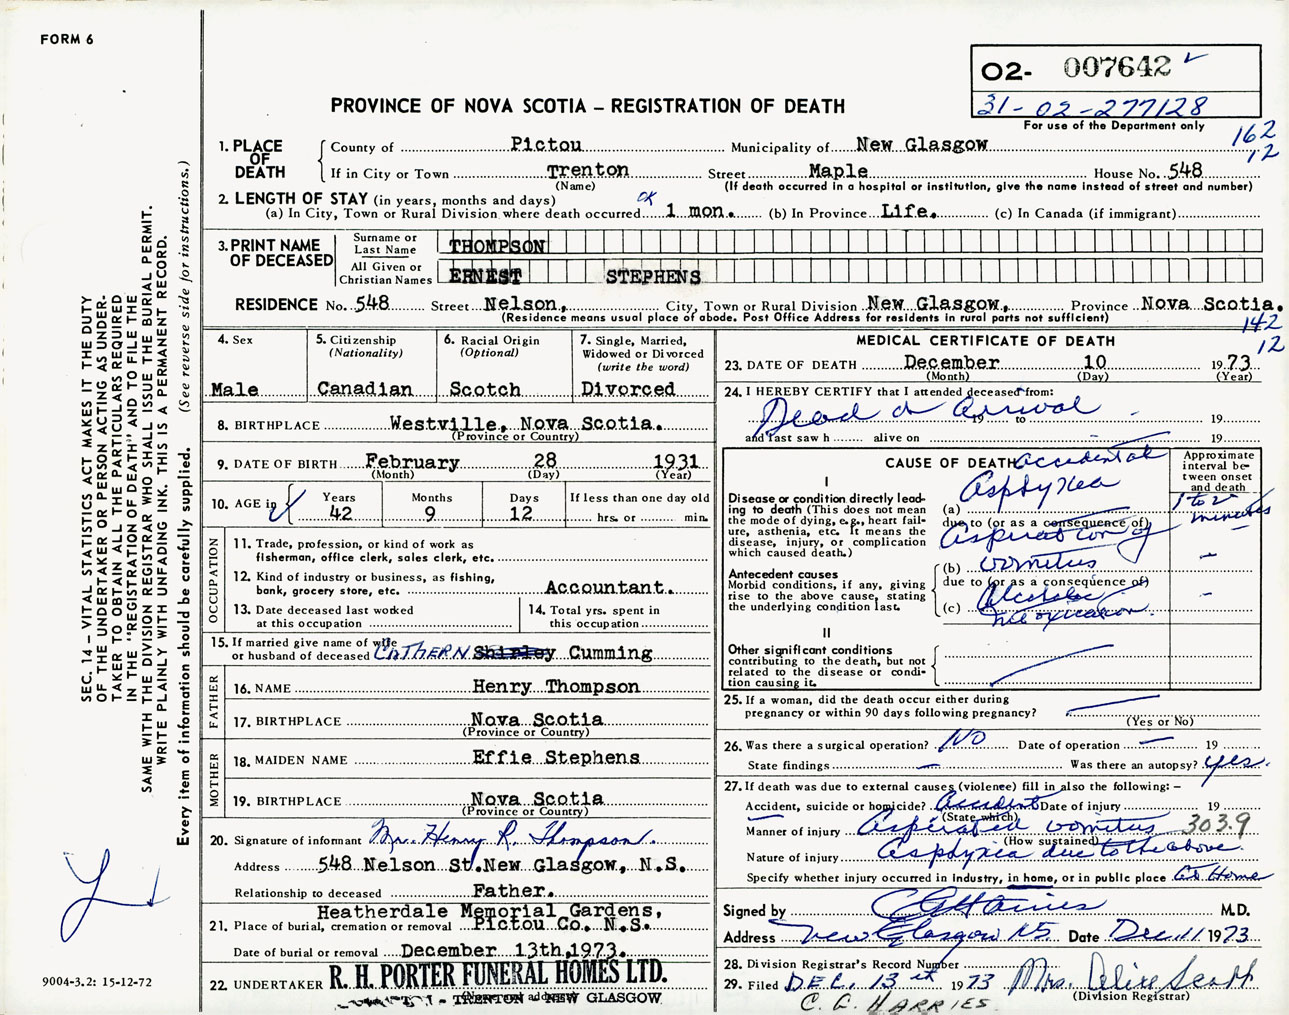 FORM 6
O2- 007642
31-02-277128
For use of the Department only
PROVINCE OF NOVA SCOTIA – REGISTRATION OF DEATH
162
12
1. PLACE OF DEATH
County of Pictou Municipality of New Glasgow
If in City or Town Trenton Street Maple House No. 548
(Name) (If death occurred in a hospital or institution, give the name instead of street and number)
2. LENGTH OF STAY (in years, months and days) OK
(a) In City, Town or Rural Division where death occurred 1 mon. (b) In Province Life. (c) In Canada (if immigrant)
3. PRINT NAME OF DECEASED
Surname or Last Name THOMPSON
All Given or Christian Names ERNEST STEPHENS
RESIDENCE No. 548 Street Nelson, City, Town or Rural Division New Glasgow, Province Nova Scotia.
(Residence means usual place of abode. Post Office Address for residents in rural parts not sufficient)
142
12
4. Sex
Male
5. Citizenship
(Nationality)
Canadian
6. Racial Origin
(Optional)
Scotch
7. Single, Married,
Widowed or Divorced
(write the word)
Divorced
8. BIRTHPLACE Westville, Nova Scotia.
(Province or Country)
9. DATE OF BIRTH February 28 1931
(Month) (Day) (Year)
10. AGE in
Years Months Days If less than one day old
42 9 12 hrs. or min.
OCCUPATION
11. Trade, profession, or kind of work as
fisherman, office clerk, sales clerk, etc.
12. Kind of industry or business, as fishing,
bank, grocery store, etc. Accountant.
13. Date deceased last worked
at this occupation
14. Total yrs. spent in
this occupation
15. If married give name of wife
or husband of deceased CATHERN Shirley Cumming
FATHER
16. NAME Henry Thompson
17. BIRTHPLACE Nova Scotia
(Province or Country)
MOTHER
18. MAIDEN NAME Effie Stephens
19. BIRTHPLACE Nova Scotia
(Province or Country)
20. Signature of informant Mr. Henry R. Thompson.
Address 548 Nelson St. New Glasgow, N.S.
Relationship to deceased Father.
Heatherdale Memorial Gardens,
21. Place of burial, cremation or removal Pictou Co. N.S.
Date of burial or removal December 13th, 1973.
22. UNDERTAKER R. H. PORTER FUNERAL HOMES LTD.
TRENTON NEW GLASGOW
MEDICAL CERTIFICATE OF DEATH
23. DATE OF DEATH December 10 1973
(Month) (Day) (Year)
24. I HEREBY CERTIFY that I attended deceased from:
Dead on Arrival 19 to 19
and last saw h alive on 19
CAUSE OF DEATH accidental
Approximate
interval be-
tween onset
and death
I
Disease or condition directly lead-
ing to death (This does not mean
the mode of dying, e.g., heart fail-
ure, asthenia, etc. It means the
disease, injury, or complication
which caused death.)
(a) Asphyxea
1 to 2
minutes
due to (or as a consequence of)
Aspiration of
Antecedent causes
Morbid conditions, if any, giving
rise to the above cause, stating
the underlying condition last.
(b) vomitus
due to (or as a consequence of)
(c) Alcoholic
intoxication.
II
Other significant conditions
contributing to the death, but not
related to the disease or condi-
tion causing it.
25. If a woman, did the death occur either during
pregnancy or within 90 days following pregnancy?
(Yes or No)
26. Was there a surgical operation? NO Date of operation — 19
State findings — Was there an autopsy? yes.
27. If death was due to external causes (violence) fill in also the following: –
Accident, suicide or homicide? Accident Date of injury 19
(State which)
Manner of injury Aspirated vomitus 303.9
(How sustained)
Nature of injury Asphyxea due to the above.
Specify whether injury occurred in industry, in home, or in public place At Home
Signed by M.D.
Address New Glasgow NS. Date Dec. 11 1973
28. Division Registrar's Record Number
29. Filed DEC. 13 st 1973 Mrs. Alice Scott
(Division Registrar)
C. G. HARRIES
SEC. 14 – VITAL STATISTICS ACT MAKES IT THE DUTY
OF THE UNDERTAKER OR PERSON ACTING AS UNDER-
TAKER TO OBTAIN ALL THE PARTICULARS REQUIRED
IN THE "REGISTRATION OF DEATH" AND TO FILE THE
SAME WITH THE DIVISION REGISTRAR WHO SHALL ISSUE THE BURIAL PERMIT.
WRITE PLAINLY WITH UNFADING INK. THIS IS A PERMANENT RECORD.
Every item of information should be carefully supplied. (See reverse side for instructions.)
9004-3.2: 15-12-72